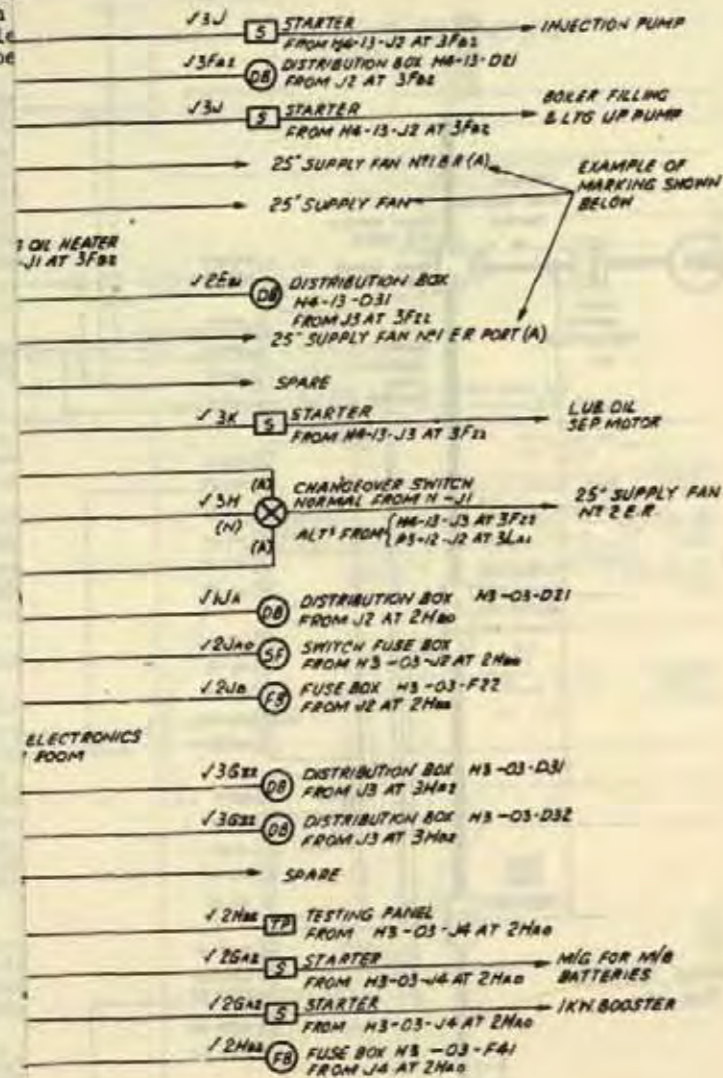 √3J S STARTER
FROM H4-13-J2 AT 3FB2
INJECTION PUMP
√3FB2 DB DISTRIBUTION BOX H4-13-D21
FROM J2 AT 3FB2
√3J S STARTER
FROM H4-13-J2 AT 3FB2
BOILER FILLING
& LTG UP PUMP
25" SUPPLY FAN Nº1 B R (A)
EXAMPLE OF
MARKING SHOWN
BELOW
25" SUPPLY FAN
OIL HEATER
-J1 AT 3FB2
√2EB1 DB DISTRIBUTION BOX
H4-13-D31
FROM J3 AT 3FZ2
25" SUPPLY FAN Nº1 E R PORT (A)
SPARE
√3K S STARTER
FROM H4-13-J3 AT 3FZ2
LUB OIL
SEP MOTOR
(A)
√3H
(N)
(A)
CHANGEOVER SWITCH
NORMAL FROM H -J1
ALTS FROM { H4-13-J3 AT 3FZ2
-12-J2 AT
25" SUPPLY FAN
Nº 2 E.R.
√1JA DB DISTRIBUTION BOX H3-03-D21
FROM J2 AT
√2JA0 SF SWITCH FUSE BOX
FROM H3-03-J2 AT
√2JB FB FUSE BOX H3-03-F22
FROM J2 AT
ELECTRONICS
ROOM
DB DISTRIBUTION BOX H3-03-D31
FROM J3 AT
DB DISTRIBUTION BOX H3-03-D32
FROM J3 AT
SPARE
TP TESTING PANEL
FROM H3-03-J4 AT 2HA0
√2GA2 S STARTER
FROM H3-03-J4 AT 2HA0
M/G FOR M/B
BATTERIES
√2GA2 S STARTER
FROM H3-03-J4 AT 2HA0
1KW. BOOSTER
FB FUSE BOX H3-03-F41
FROM J4 AT 2HA0